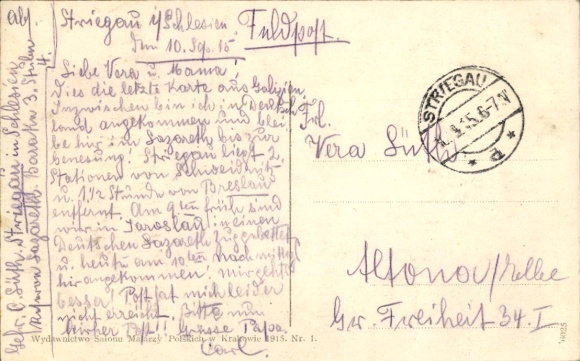 Striegau i/Schlesien
den 10. Sep. 15
Feldpost.
Liebe Vera u. Mama!
Dies die letzte Karte aus Galizien.
Inzwischen bin ich in Deutsch-
land angekommen und blei
be hier im Lazareth bis zur
Genesung. Striegau liegt 2
Stationen von Schweidnitz
u. 1½ Stunde von Breslau
entfernt. Am 9ten früh sind
wir in Jaroslau in einen
Deutschen Lazareth Zug gebettet
u. heute am 10ten nachmittag
hier angekommen. Mir geht
besser! Post hat mich leider
nicht erreicht. Bitte nun
hierher Post!! Grüsse Papa.
Carl.
Abs.
Gefr. C. Süth. Striegau in Schlesien
Reserve Lazareth. Baracke 3. Stube 4.
Frl.
Vera Süth
Altona/Elbe
Gr. Freiheit 34. I
STRIEGAU
15.6-7N
* d *
Wydawnictwo Salonu Malarzy Polskich w Krakowie 1915. Nr. 1.